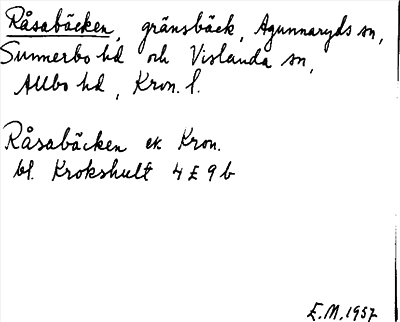 Råsabäcken, gränsbäck, Agunnaryds sn,
Sunnerbo hd och Vislanda sn,
Allbo hd, Kron. l.
Råsabäcken ek Kron.
bl. Krokshult 4 E 9 b
E.M. 1957